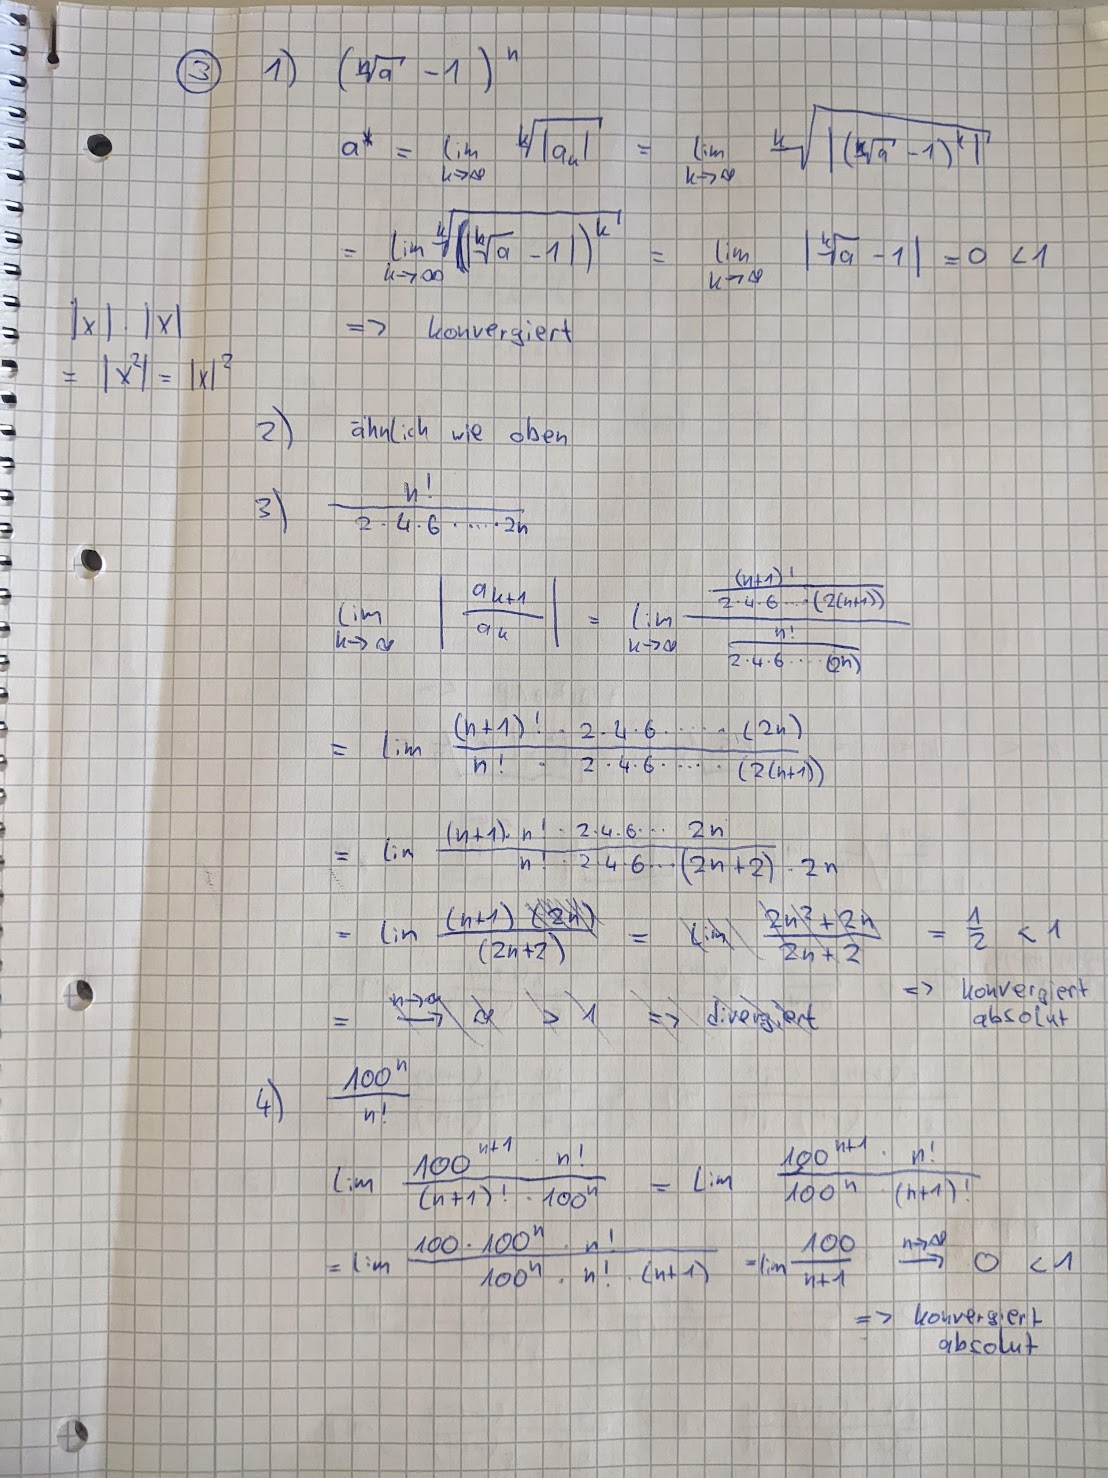 ③ 1) (ⁿ√a - 1)ⁿ
a* = lim k→∞ ᵏ√|aₖ| = lim k→∞ ᵏ√|(ᵏ√a - 1)ᵏ|
= lim k→∞ ᵏ√(|ᵏ√a - 1|)ᵏ = lim k→∞ |ᵏ√a - 1| = 0 < 1
|x| · |x|
= |x²| = |x|²
=> konvergiert
2) ähnlich wie oben
3) n! / 2·4·6·....·2n
lim k→∞ |aₖ₊₁ / aₖ| = lim k→∞ ((n+1)! / 2·4·6·...·(2(n+1))) / (n! / 2·4·6·...·(2n))
= lim (n+1)! · 2·4·6·....·(2n) / n! · 2·4·6·....·(2(n+1))
= lim (n+1)·n! · 2·4·6·... 2n / n! · 2·4·6·...(2n+2) · 2n
= lim (n+1) (2n) / (2n+2) = lim 2n² + 2n / 2n + 2 = 1/2 < 1
=> konvergiert
absolut
= n→∞ ⟶ ∞ > 1 => divergiert
4) 100ⁿ / n!
lim 100ⁿ⁺¹ · n! / (n+1)! · 100ⁿ = lim 100ⁿ⁺¹ · n! / 100ⁿ · (n+1)!
= lim 100·100ⁿ · n! / 100ⁿ · n! · (n+1) = lim 100 / n+1 n→∞ ⟶ 0 < 1
=> konvergiert
absolut